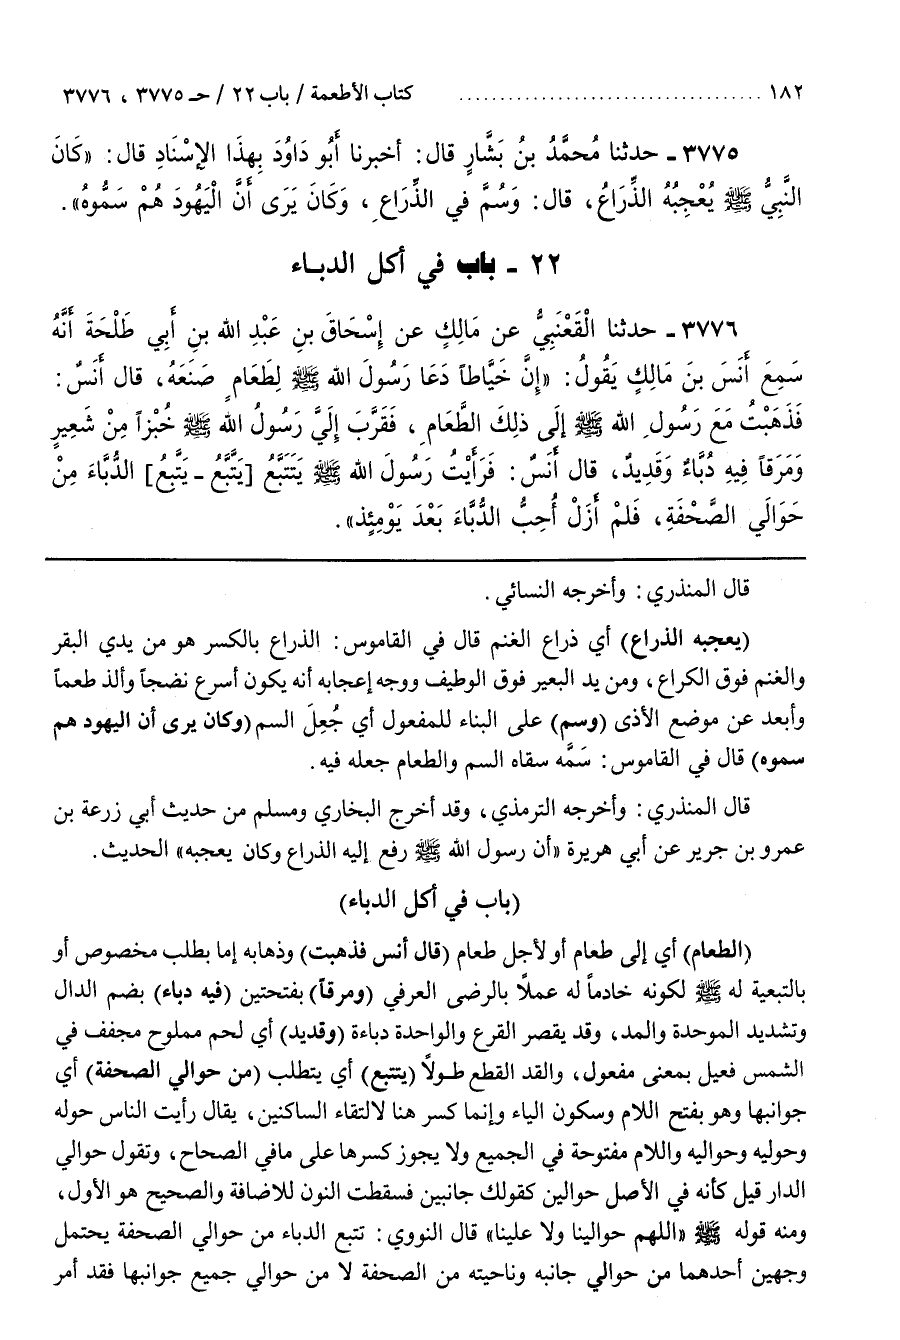 ١٨٢ ..................................... كتاب الأطعمة / باب ٢٢ / حـ ٣٧٧٥ ، ٣٧٧٦
٣٧٧٥ ـ حدثنا مُحمَّدُ بنُ بَشَّارٍ قال: أخبرنا أَبُو دَاوُدَ بِهذَا الإسْنَادِ قال: «كَانَ
النَّبِيُّ ﷺ يُعْجِبُهُ الذِّرَاعُ، قال: وَسُمَّ في الذِّرَاعِ، وَكَانَ يَرَى أَنَّ الْيَهُودَ هُمْ سَمُّوهُ».
٢٢ ـ باب في أكل الدبـاء
٣٧٧٦ ـ حدثنا الْقَعْنَبِيُّ عن مَالِكٍ عن إسْحَاقَ بنِ عَبْدِ الله بنِ أَبِي طَلْحَةَ أَنَّهُ
سَمِعَ أَنَسَ بنَ مَالِكٍ يَقُولُ: «إنَّ خَيَّاطاً دَعَا رَسُولَ الله ﷺ لِطَعَامٍ صَنَعَهُ، قال أَنَسٌ:
فَذَهَبْتُ مَعَ رَسُولِ الله ﷺ إلَى ذلِكَ الطَّعَامِ، فَقَرَّبَ إلَيَّ رَسُولُ الله ﷺ خُبْزاً مِنْ شَعِيرٍ
وَمَرَقاً فِيهِ دُبَّاءٌ وَقَدِيدٌ، قال أَنَسٌ: فَرَأَيْتُ رَسُولَ الله ﷺ يَتَتَبَّعُ [يَتَّبَّعُ ـ يَتَّبِعُ] الدُّبَّاءَ مِنْ
حَوَالَي الصَّحْفَةِ، فَلَمْ أَزَلْ أُحِبُّ الدُّبَّاءَ بَعْدَ يَوْمِئِذٍ».
قال المنذري: وأخرجه النسائي.
(يعجبه الذراع) أي ذراع الغنم قال في القاموس: الذراع بالكسر هو من يدي البقر
والغنم فوق الكراع، ومن يد البعير فوق الوظيف ووجه إعجابه أنه يكون أسرع نضجاً وألذ طعماً
وأبعد عن موضع الأذى (وسم) على البناء للمفعول أي جُعِلَ السم (وكان يرى أن اليهود هم
سموه) قال في القاموس: سَمَّه سقاه السم والطعام جعله فيه.
قال المنذري: وأخرجه الترمذي، وقد أخرج البخاري ومسلم من حديث أبي زرعة بن
عمرو بن جرير عن أبي هريرة «أن رسول الله ﷺ رفع إليه الذراع وكان يعجبه» الحديث.
(باب في أكل الدباء)
(الطعام) أي إلى طعام أو لأجل طعام (قال أنس فذهبت) وذهابه إما بطلب مخصوص أو
بالتبعية له ﷺ لكونه خادماً له عملاً بالرضى العرفي (ومرقاً) بفتحتين (فيه دباء) بضم الدال
وتشديد الموحدة والمد، وقد يقصر القرع والواحدة دباءة (وقديد) أي لحم مملوح مجفف في
الشمس فعيل بمعنى مفعول، والقد القطع طـولاً (يتتبع) أي يتطلب (من حوالي الصحفة) أي
جوانبها وهو بفتح اللام وسكون الياء وإنما كسر هنا لالتقاء الساكنين، يقال رأيت الناس حوله
وحوليه وحواليه واللام مفتوحة في الجميع ولا يجوز كسرها على مافي الصحاح، وتقول حوالي
الدار قيل كأنه في الأصل حوالين كقولك جانبين فسقطت النون للاضافة والصحيح هو الأول،
ومنه قوله ﷺ «اللهم حوالينا ولا علينا» قال النووي: تتبع الدباء من حوالي الصحفة يحتمل
وجهين أحدهما من حوالي جانبه وناحيته من الصحفة لا من حوالي جميع جوانبها فقد أمر